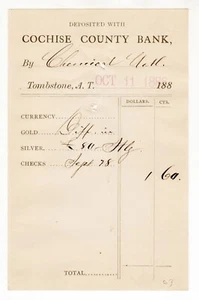 DEPOSITED WITH
COCHISE COUNTY BANK,
By Chemical Natl.
OCT 11
Tombstone, A. T. 188
DOLLARS. CTS.
CURRENCY
GOLD Diff. in
SILVER,
CHECKS Sept 28
1 60
TOTAL